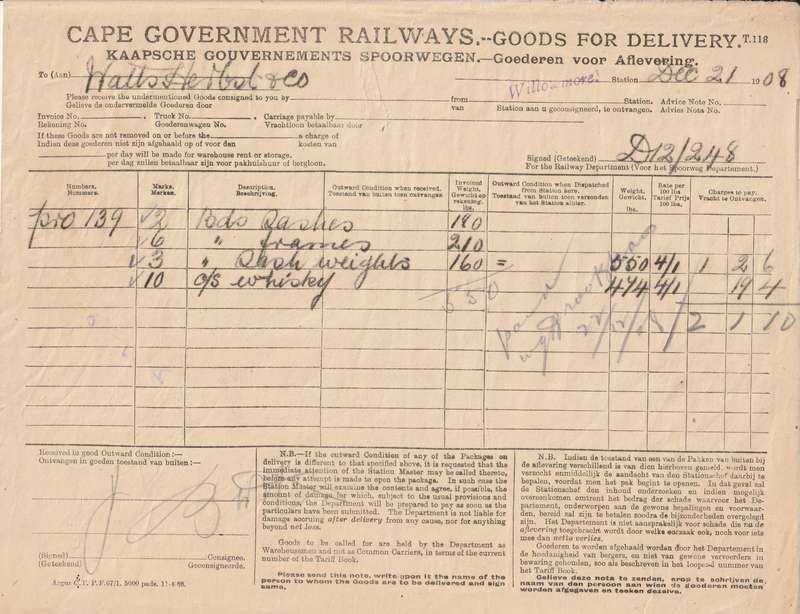 CAPE GOVERNMENT RAILWAYS.--GOODS FOR DELIVERY. T.118
KAAPSCHE GOUVERNEMENTS SPOORWEGEN.—Goederen voor Aflevering.
To (Aan) Watts Herbst & Co Willowmore. Station Dec 21 1908.
Please receive the undermentioned Goods consigned to you by from Station. Advice Note No.
Gelieve de ondervermelde Goederen door van Station aan u geconsigneerd, te ontvangen. Advies Nota No.
Invoice No. Truck No. Carriage payable by
Rekening No. Goederenwagen No. Vrachtloon betaalbaar door
If these Goods are not removed on or before the a charge of
Indien deze goederen niet zijn afgehaald op of voor den kosten van
per day will be made for warehouse rent or storage.
per dag zullen betaalbaar zijn voor pakhuishuur of bergloon.
Signed (Geteekend) D12/248
For the Railway Department (Voor het Spoorweg Departement.)
Numbers. Nummers.
Marks. Merken.
Description. Beschrijving.
Outward Condition when received. Toestand van buiten toen ontvangen
Invoiced Weight. Gewicht op rekening. lbs.
Outward Condition when Dispatched from Station here. Toestand van buiten toen verzonden van het Station alhier.
Weight. Gewicht. lbs.
Rate per 100 lbs Tarief Prijs 100 lbs.
Charges to pay. Vracht te Ontvangen.
pro 139 2 Bds Sashes 180
6 " frames 210
3 " Sash weights 160 = 550 4/1 1 2 6
10 c/s whisky 474 4/1 19 4
550
paid
22/12/08
2 1 10
Received in good Outward Condition:—
Ontvangen in goeden toestand van buiten:—
(Signed) Consignee.
(Geteekend) Geconsigneerde.
N.B.—If the outward Condition of any of the Packages on
delivery is different to that specified above, it is requested that the
immediate attention of the Station Master may be called thereto,
before any attempt is made to open the package. In such case the
Station Master will examine the contents and agree, if possible, the
amount of damage for which, subject to the usual provisions and
conditions, the Department will be prepared to pay as soon as the
particulars have been submitted. The Department is not liable for
damage accruing after delivery from any cause, nor for anything
beyond net loss.
Goods to be called for are held by the Department as
Warehousemen and not as Common Carriers, in terms of the current
number of the Tariff Book.
Please send this note, write upon it the name of the
person to whom the Goods are to be delivered and sign
same.
N.B. Indien de toestand van een van de Pakken van buiten bij
de aflevering verschillend is van dien hierboven gemeld, wordt men
verzocht onmiddellijk de aandacht van den Stationschef daarbij te
bepalen, voordat men het pak begint te openen. In dat geval zal
de Stationschef den inhoud onderzoeken en indien mogelijk
overeenkomen omtrent het bedrag der schade waarvoor het De-
partement, onderworpen aan de gewone bepalingen en voorwaar-
den, bereid zal zijn te betalen zoodra de bijzonderheden overgelegd
zijn. Het Departement is niet aansprakelijk voor schade die na de
aflevering toegebracht wordt door welke oorzaak ook, noch voor iets
meer dan netto verlies.
Goederen te worden afgehaald worden door het Departement in
de hoedanigheid van bergers, en niet van gewone vervoerders in
bewaring gehouden, zoo als beschreven in het loopend nummer van
het Tarief Book.
Gelieve deze nota te zenden, erop te schrijven de
naam van den persoon aan wien de goederen moeten
worden afgegeven en teeken dezelve.